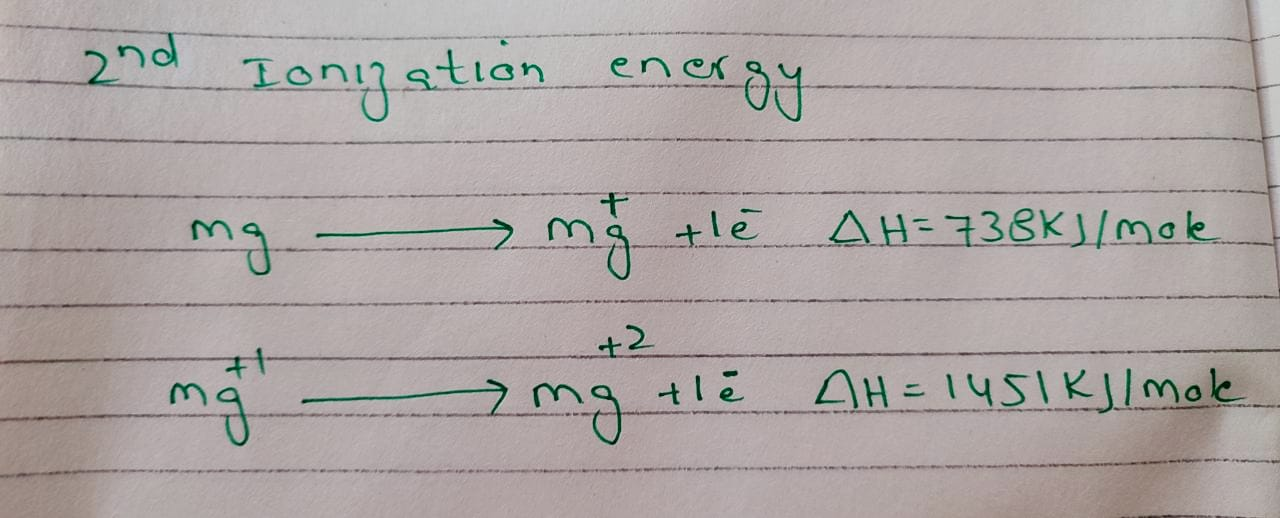 2nd Ionization energy
mg ⟶ mg⁺ + 1e⁻ ΔH = 738KJ/mole
mg⁺¹ ⟶ mg⁺² + 1e⁻ ΔH = 1451KJ/mole